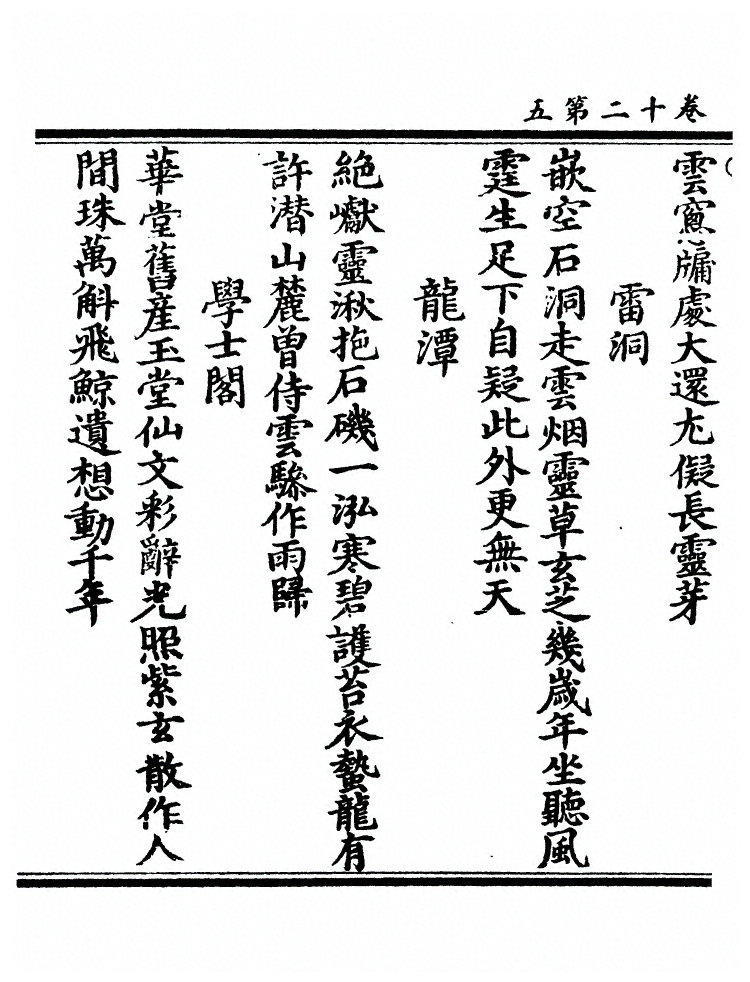 卷十二第五
雲窻牖處大還尤儗長靈芽
雷洞
嵌空石洞走雲烟靈草玄芝幾歲年坐聽風
霆生足下自疑此外更無天
龍潭
絶巘靈湫抱石磯一泓寒碧護苔衣蟄龍有
許潛山麓曾侍雲驂作雨歸
學士閣
華堂舊産玉堂仙文彩辭光照紫玄散作人
間珠萬斛飛鯨遺想動千年